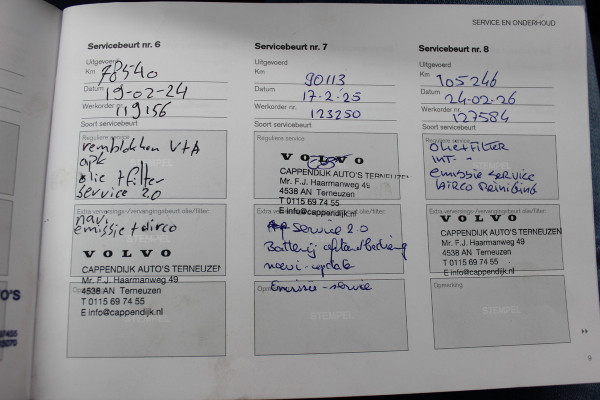 SERVICE EN ONDERHOUD
Servicebeurt nr. 6
Uitgevoerd
Km 78540
Datum 19-02-24
Werkorder nr. 119156
Soort servicebeurt
Reguliere service
remblokken V+A
apk
olie + filter
service 20
STEMPEL
Extra verversings-/vervangingsbeurt olie/filter:
navi
emissie + airco
VOLVO
CAPPENDIJK AUTO'S TERNEUZEN
Mr. F.J. Haarmanweg 49
4538 AN Terneuzen
T 0115 69 74 55
E info@cappendijk.nl
Servicebeurt nr. 7
Uitgevoerd
Km 90113
Datum 17-2-25
Werkorder nr. 123250
Soort servicebeurt
Reguliere service
VOLVO
CAPPENDIJK AUTO'S TERNEUZEN
Mr. F.J. Haarmanweg 49
4538 AN Terneuzen
T 0115 69 74 55
E info@cappendijk.nl
Extra verversings-/vervangingsbeurt olie/filter:
Service 20
Batterij afstandbediening
navi-update
Emissie-service
STEMPEL
Servicebeurt nr. 8
Uitgevoerd
Km 105246
Datum 24-02-26
Werkorder nr. 127584
Soort servicebeurt
Reguliere service
OLIE+FILTER
INT. -
emissie service
AIRCO Reiniging
STEMPEL
Extra verversings-/vervangingsbeurt olie/filter:
VOLVO
CAPPENDIJK AUTO'S TERNEUZEN
Mr. F.J. Haarmanweg 49
4538 AN Terneuzen
T 0115 69 74 55
E info@cappendijk.nl
Opmerking
STEMPEL
9